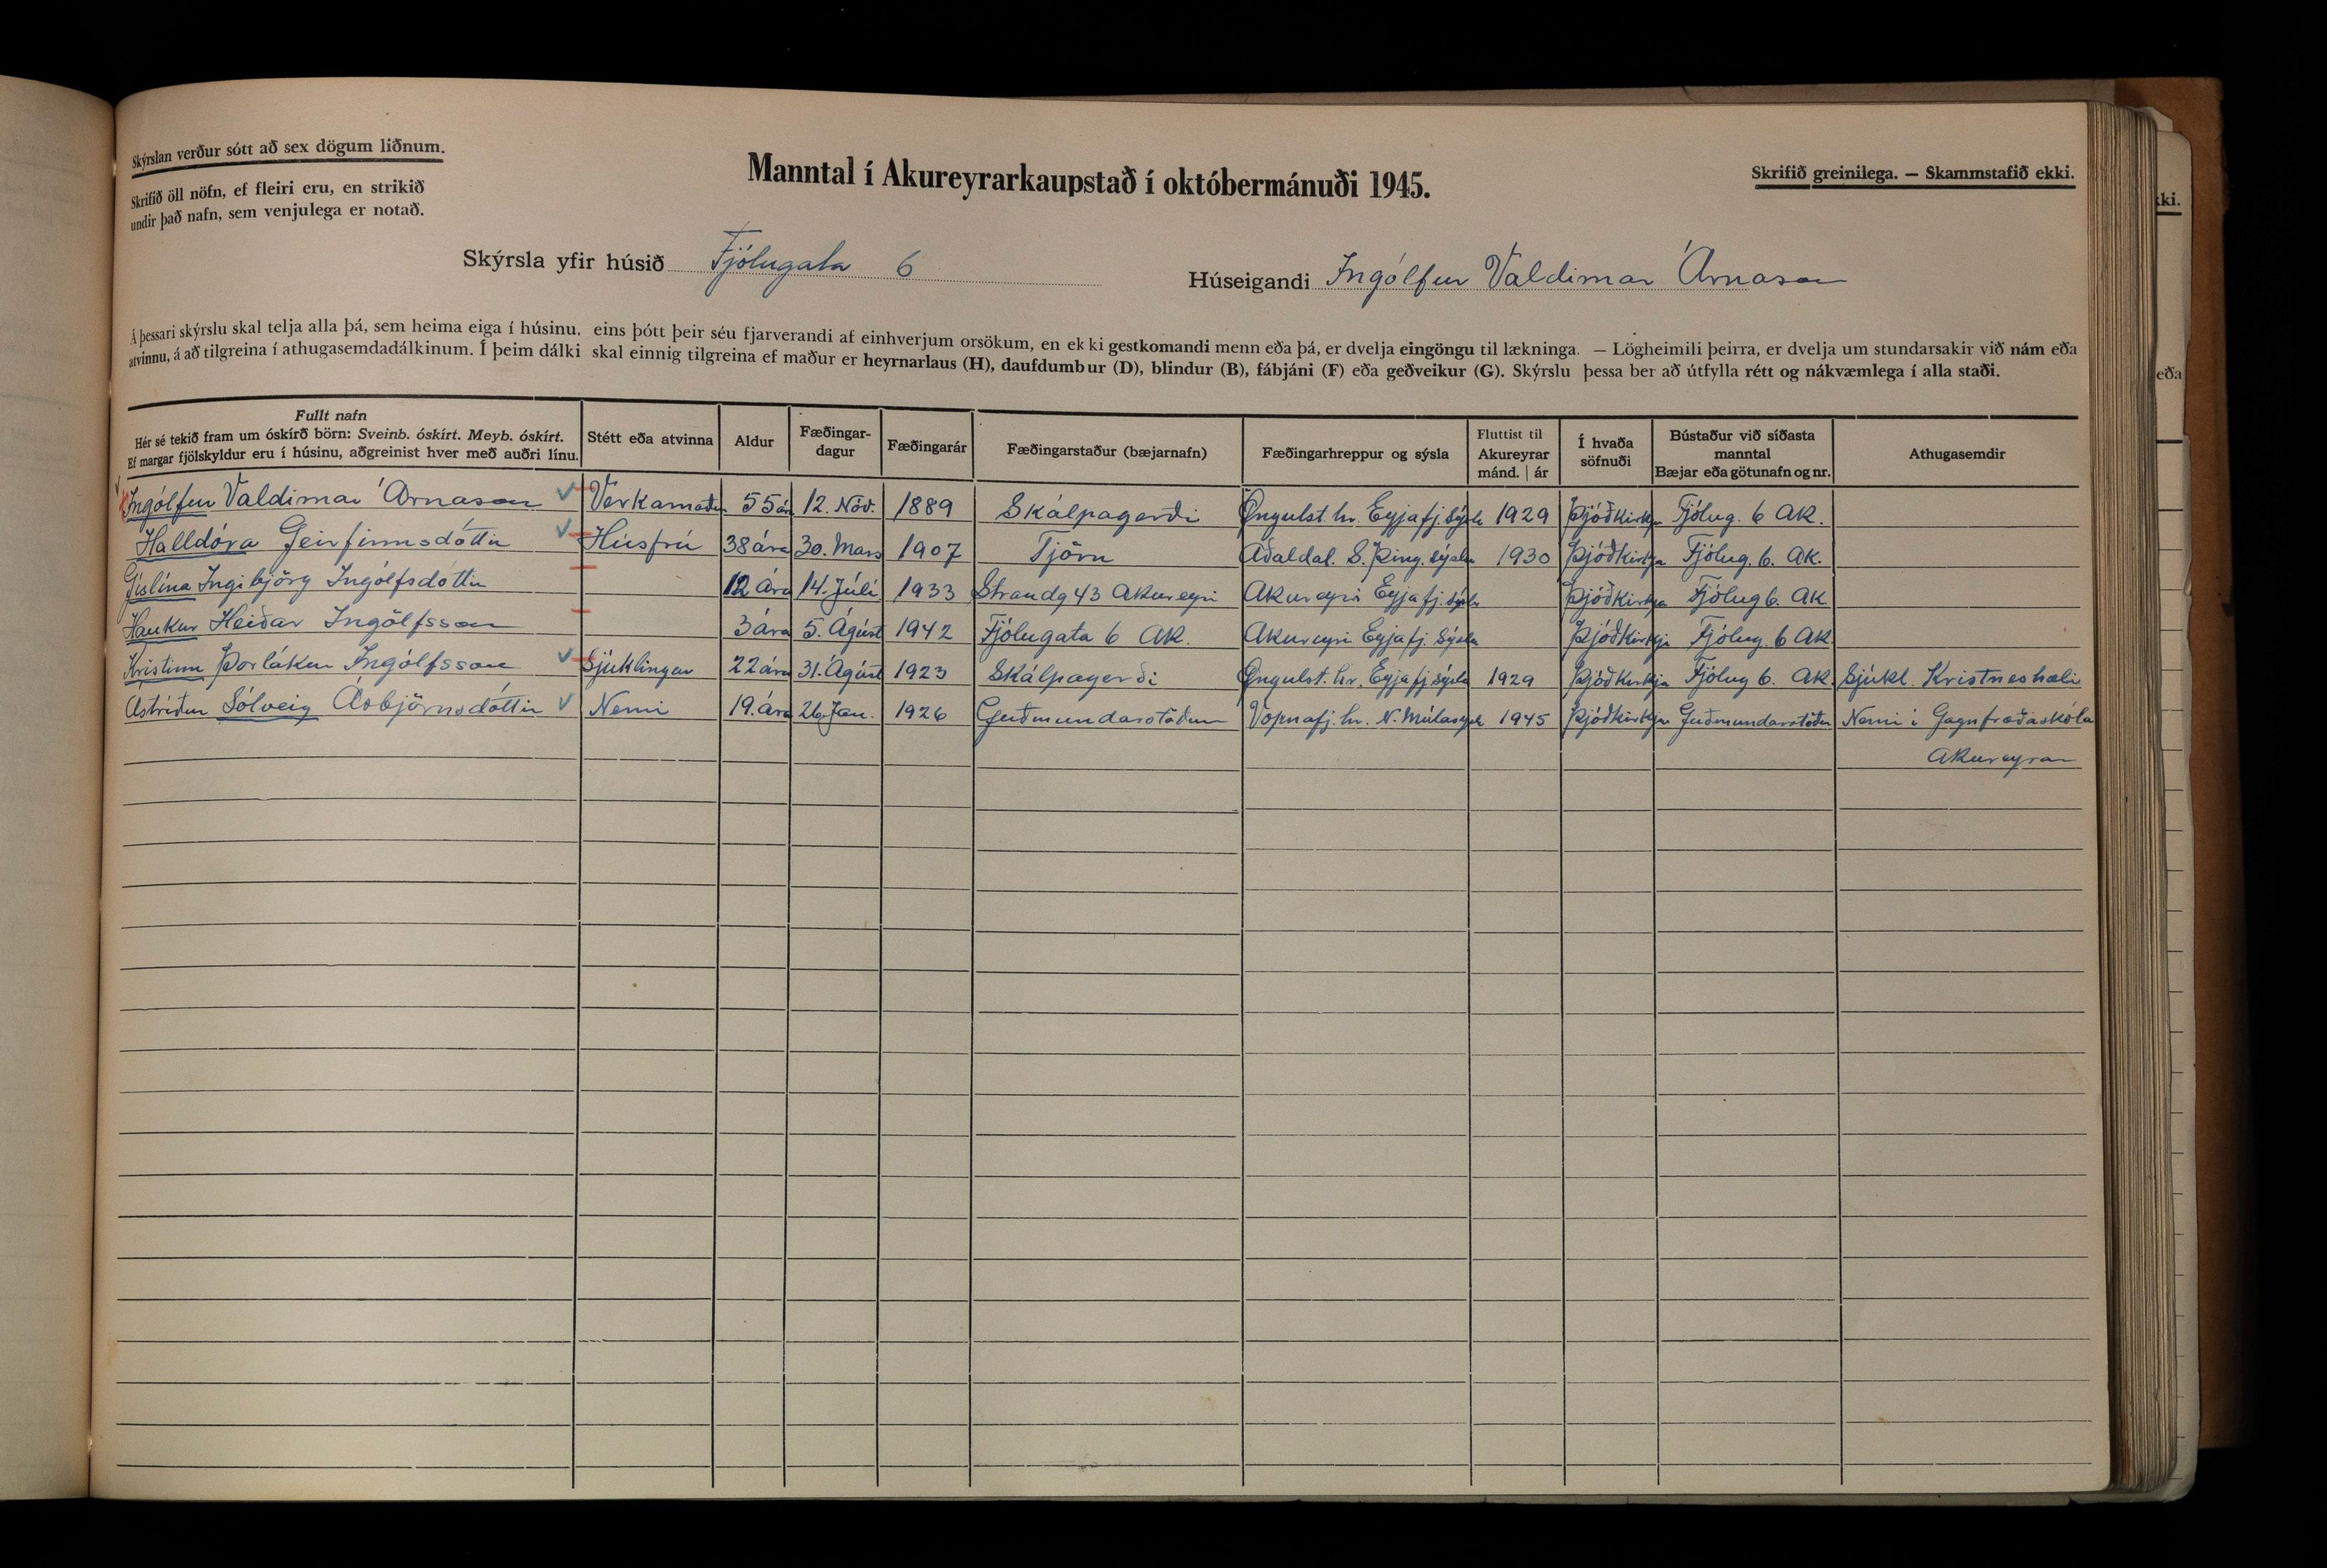 Skýrslan verður sótt að sex dögum liðnum.
Skrifið öll nöfn, ef fleiri eru, en strikið
undir það nafn, sem venjulega er notað.
Manntal í Akureyrarkaupstað í októbermánuði 1945.
Skrifið greinilega. — Skammstafið ekki.
Skýrsla yfir húsið Fjólugata 6
Húseigandi Ingólfur Valdimar Árnason
Á þessari skýrslu skal telja alla þá, sem heima eiga í húsinu, eins þótt þeir séu fjarverandi af einhverjum orsökum, en ekki gestkomandi menn eða þá, er dvelja eingöngu til lækninga. — Lögheimili þeirra, er dvelja um stundarsakir við nám eða
atvinnu, á að tilgreina í athugasemdadálkinum. Í þeim dálki skal einnig tilgreina ef maður er heyrnarlaus (H), daufdumbur (D), blindur (B), fábjáni (F) eða geðveikur (G). Skýrslu þessa ber að útfylla rétt og nákvæmlega í alla staði.
Fullt nafn
Hér sé tekið fram um óskírð börn: Sveinb. óskírt. Meyb. óskírt.
Ef margar fjölskyldur eru í húsinu, aðgreinist hver með auðri línu.
Stétt eða atvinna
Aldur
Fæðingar-
dagur
Fæðingarár
Fæðingarstaður (bæjarnafn)
Fæðingarhreppur og sýsla
Fluttist til
Akureyrar
mánd. | ár
Í hvaða
söfnuði
Bústaður við síðasta
manntal
Bæjar eða götunafn og nr.
Athugasemdir
Ingólfur Valdimar Árnason Verkamaður 55 ára 12. Nóv. 1889 Skálpagerði Öngulst. hr. Eyjafj. sýsla 1929 Þjóðkirkja Fjólug. 6 AK.
Halldóra Geirfinnsdóttir Húsfrú 38 ára 30. Mars 1907 Tjörn Aðaldal. S. Þing. sýsla 1930 Þjóðkirkja Fjólug. 6. AK.
Gíslína Ingibjörg Ingólfsdóttir 12 ára 14. Júlí 1933 Strandg 43 Akureyri Akureyri Eyjafj. sýsla Þjóðkirkja Fjólug 6. AK
Haukur Heiðar Ingólfsson 3 ára 5. Ágúst 1942 Fjólugata 6 AK. Akureyri Eyjafj. Sýsla Þjóðkirkja Fjólug. 6 AK.
Kristinn Þorlákur Ingólfsson Sjúklingur 22 ára 31. Ágúst 1923 Skálpagerði Öngulst. hr. Eyjafj. sýsla 1929 Þjóðkirkja Fjólug 6. AK. Sjúkl. Kristneshæli
Ástríður Sólveig Ásbjörnsdóttir Nemi 19. ára 26. Jan. 1926 Guðmundarstöðum Vopnafj. hr. N. Múlasýsla 1945 Þjóðkirkja Guðmundarstöðum Nemi í Gagnfræðaskóla
Akureyrar
ki.
eða